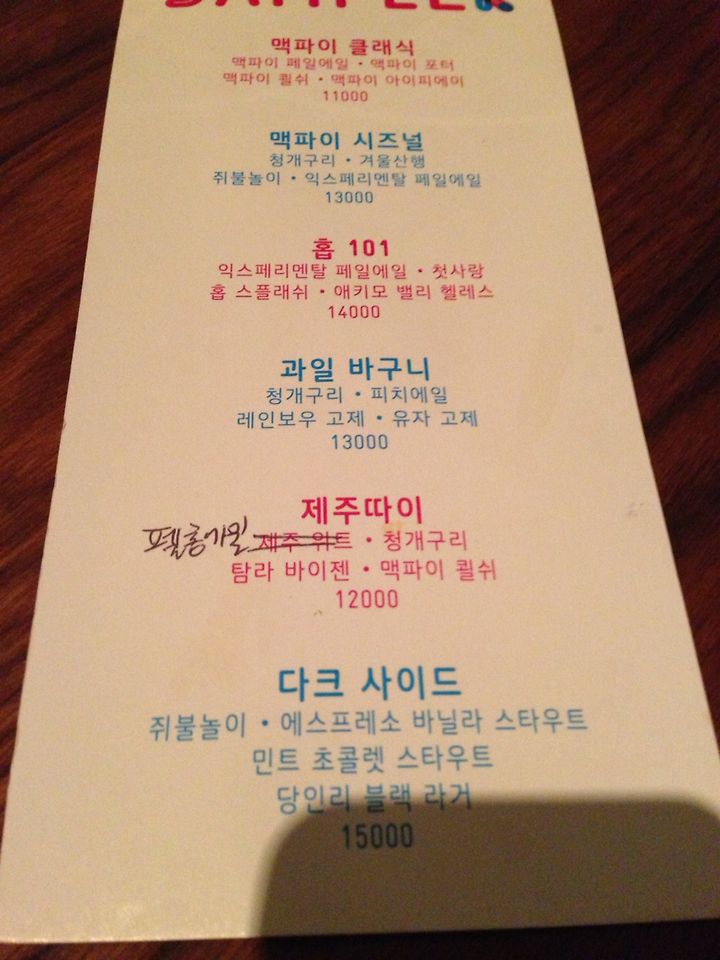 맥파이 클래식
맥파이 페일에일 • 맥파이 포터
맥파이 쾰쉬 • 맥파이 아이피에이
11000
맥파이 시즈널
청개구리 • 겨울산행
쥐불놀이 • 익스페리멘탈 페일에일
13000
홉 101
익스페리멘탈 페일에일 • 첫사랑
홉 스플래쉬 • 애키모 밸리 헬레스
14000
과일 바구니
청개구리 • 피치에일
레인보우 고제 • 유자 고제
13000
제주따이
제주 위트 • 청개구리
탐라 바이젠 • 맥파이 쾰쉬
12000
다크 사이드
쥐불놀이 • 에스프레소 바닐라 스타우트
민트 초콜렛 스타우트
당인리 블랙 라거
15000